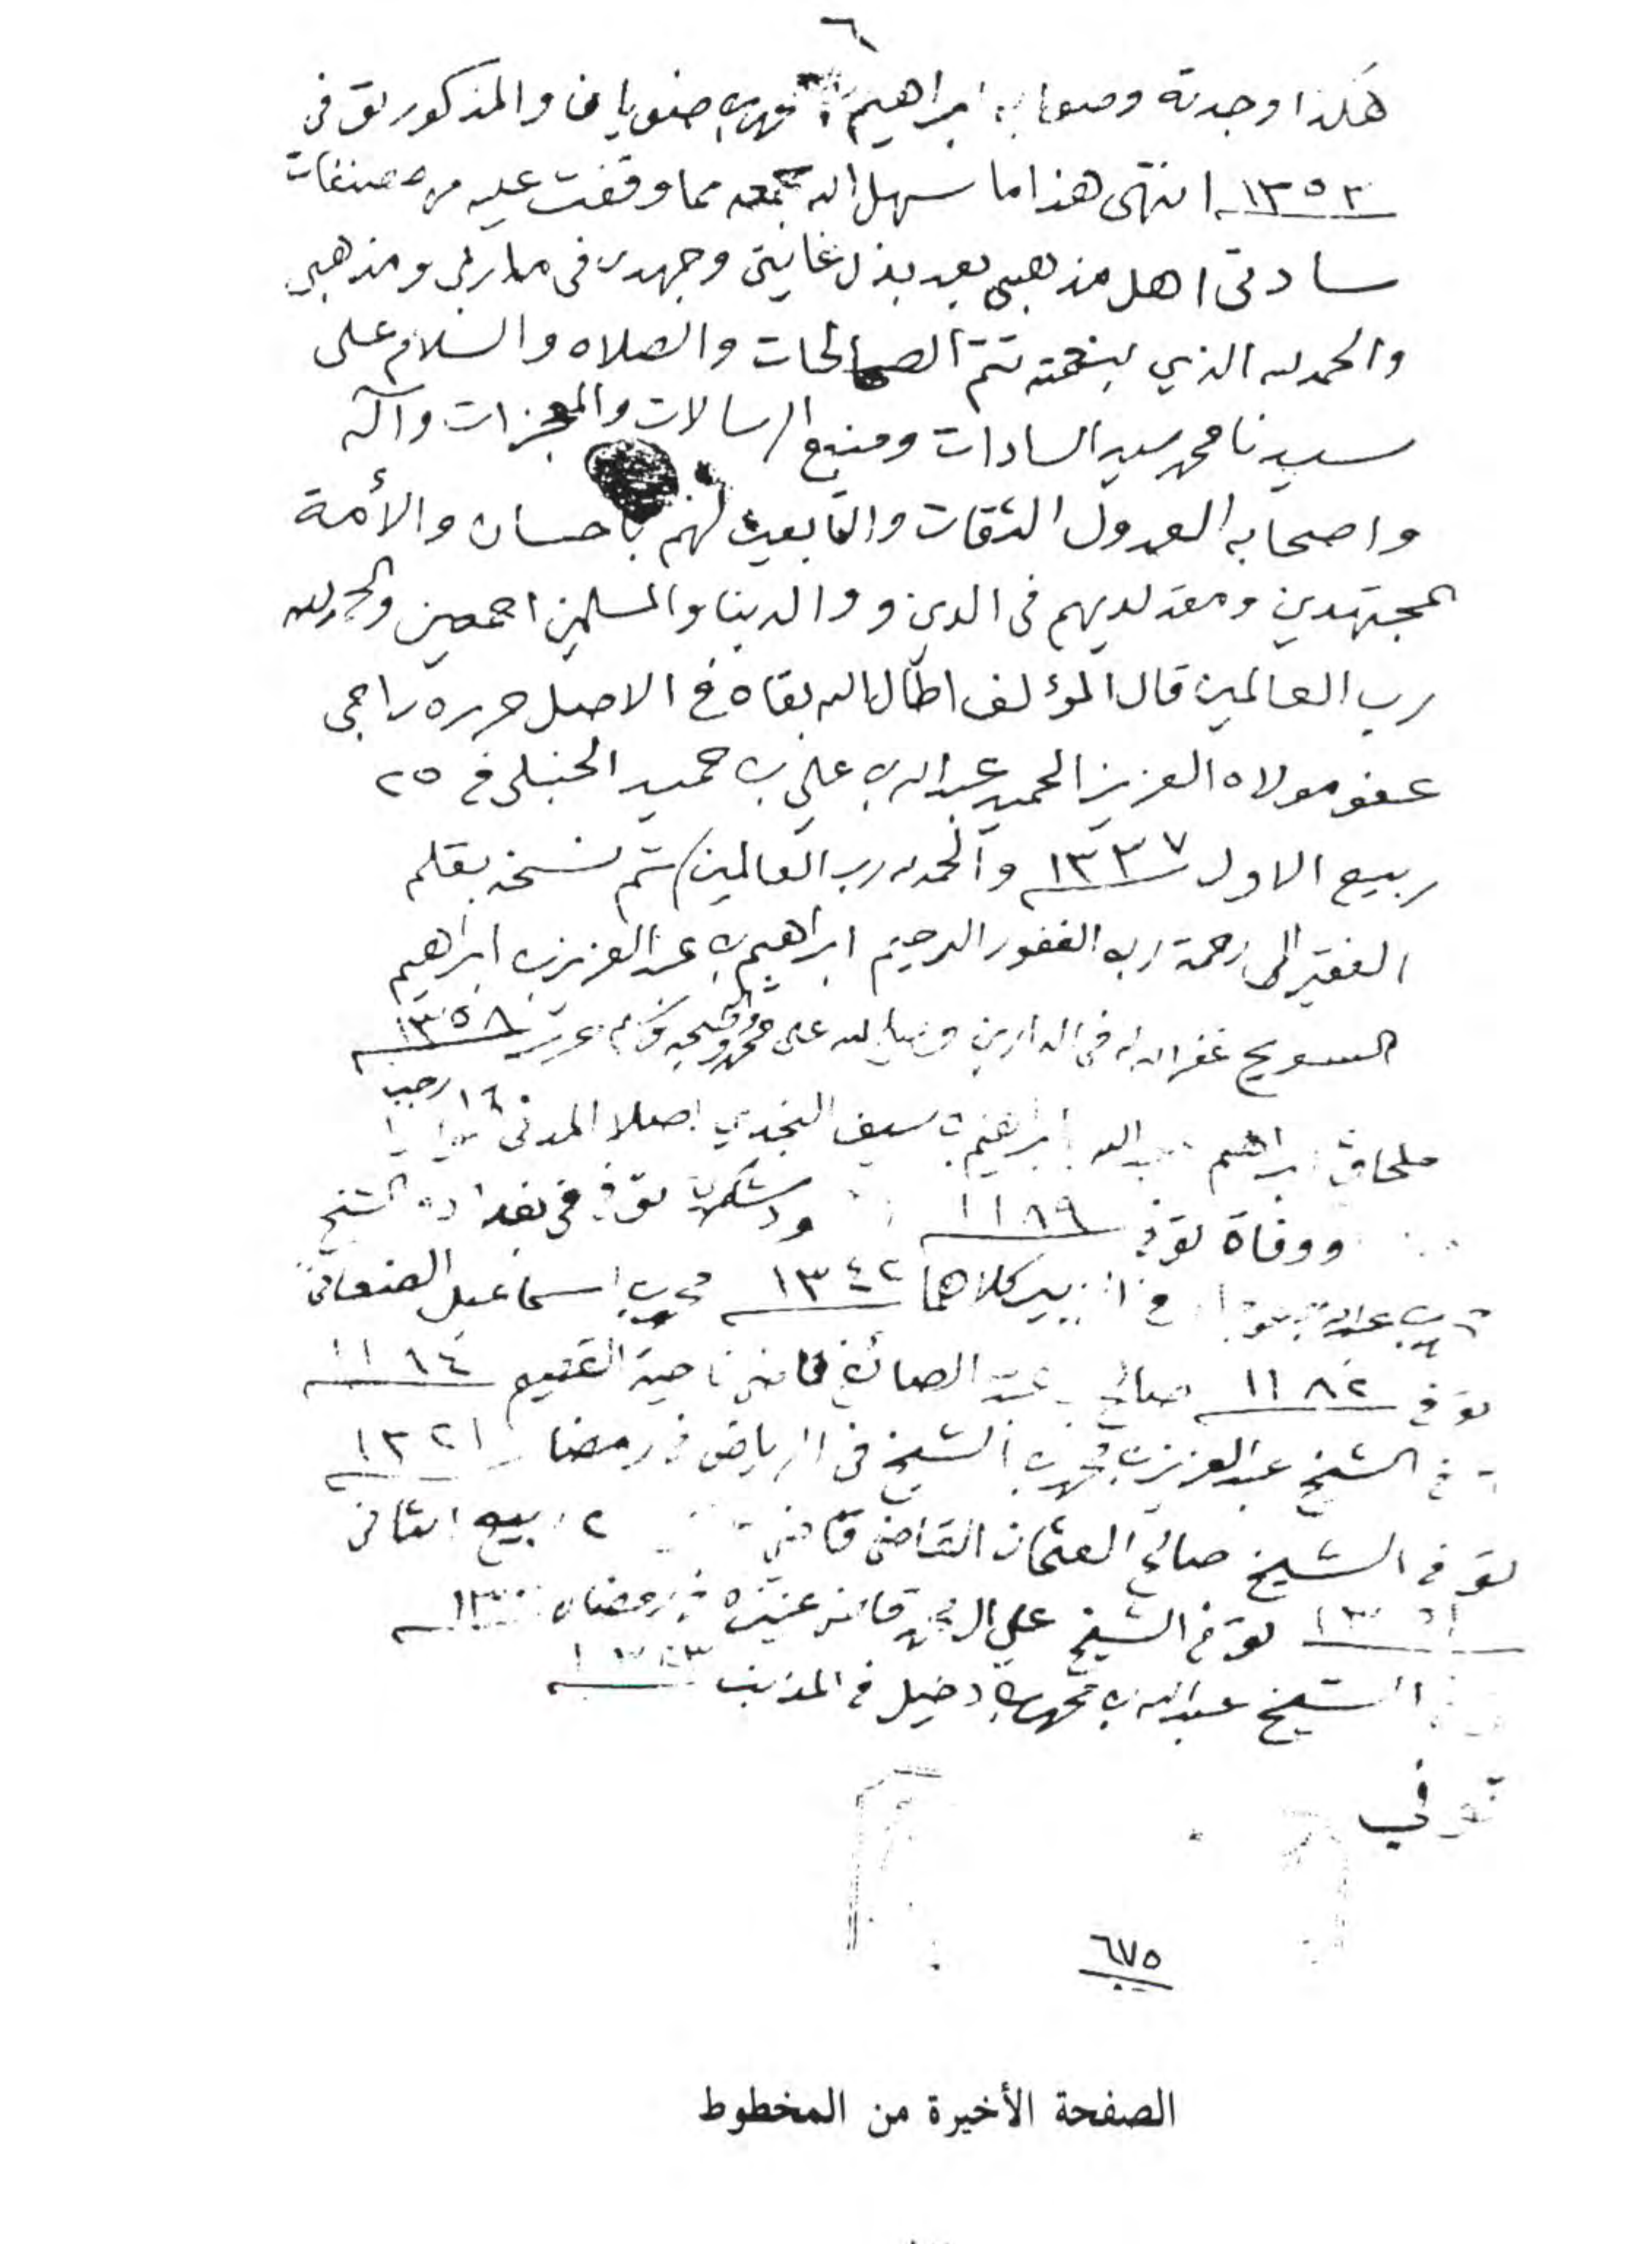 ٦
هكذا وجدته وصوابه ابراهيم بن محمد بن ضويان والمذكور توفي
١٣٥٣ انتهى هذا ما سهل الله جمعه مما وقفت عليه من مصنفات
سادتي اهل مذهبي بعد بذل غايتي وجهدي في ومذهبي
والحمد لله الذي بنعمته تتم الصالحات والصلاه والسلام على
سيدنا محمد سيد السادات ومنبع الرسالات والمعجزات وآله
واصحابه العدول الثقات والتابعين لهم باحسان والأمة
المجتهدين ومقلديهم في الدين ووالدينا والمسلمين اجمعين والحمد لله
رب العالمين قال المؤلف اطال الله بقاه في الاصل حرره راجي
عفو مولاه العزيز الحميد عبد الله بن علي بن حميد الحنبلي في ٢٥
ربيع الاول ١٣٣٧ والحمد لله رب العالمين / تم نسخه بقلم
الفقير الى رحمة ربه الغفور الرحيم ابراهيم بن عبد العزيز بن ابراهيم
السويح غفر الله له في الدارين وصلى الله على محمد وآله وصحبه وسلم ١٣٥٨
١٦ رجب
ابراهيم عبد الله بن ابراهيم بن سيف النجدي اصلا المدني
ووفاة توفي ١١٨٩ توفي في بغداد الشيخ
بن عبد الله في الزبير كلاهما ١٣٤٢ محمد بن اسماعيل الصنعاني
توفي ١١٨٢ صالح بن عبد الله الصائغ قاضي ناحية القصيم ١١٨٤
الشيخ عبد العزيز بن محمد بن الشيخ في الرياض في رمضان ١٣٢١
توفي الشيخ صالح العثمان القاضي قاضي ربيع الثاني
توفي الشيخ علي المحمد قاضي عنيزه في رمضان
الشيخ عبد الله بن محمد بن دخيل في المذنب
توفي
٦٧٥
الصفحة الأخيرة من المخطوط